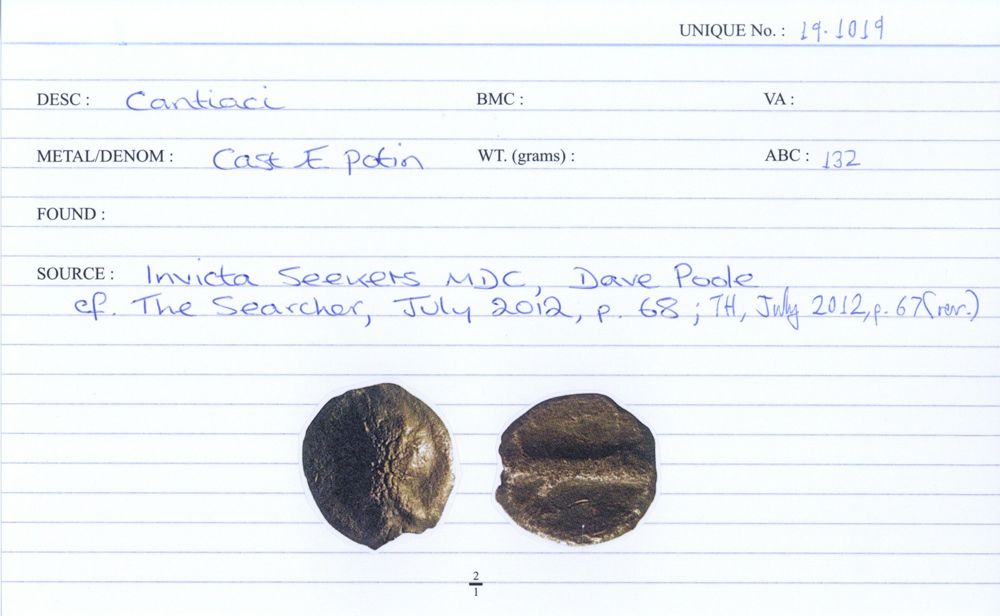 UNIQUE No. : 19.1019
DESC : Cantiaci BMC : VA :
METAL/DENOM : Cast Æ potin WT. (grams) : ABC : 132
FOUND :
SOURCE : Invicta Seekers MDC, Dave Poole
cf. The Searcher, July 2012, p. 68 ; TH, July 2012, p. 67 (rev.)
2
1